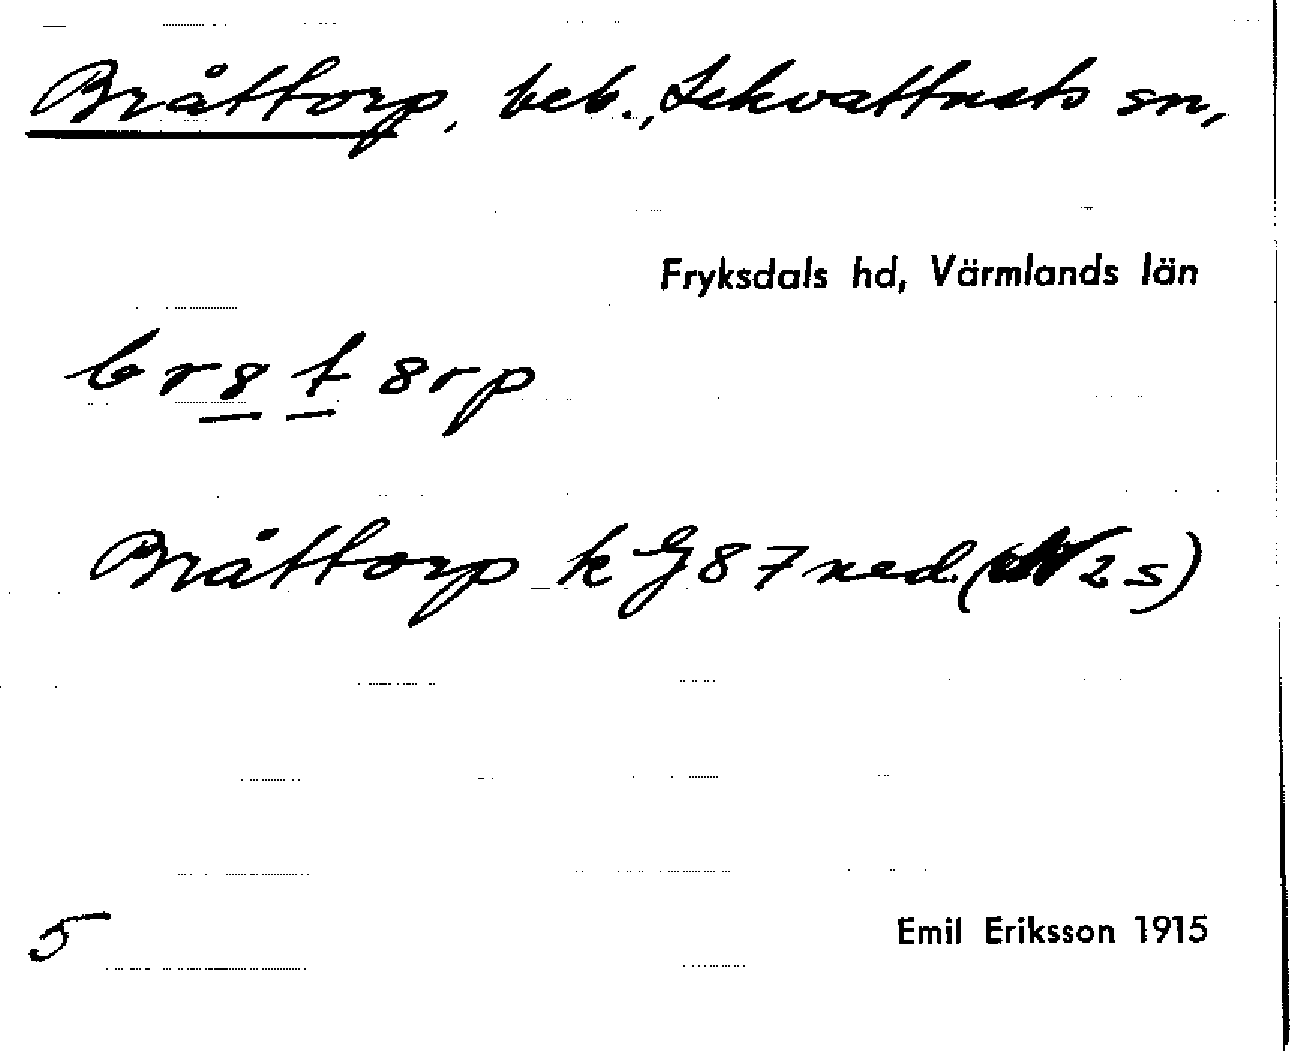 Bråttorp, beb., Lekvattnets sn,
Fryksdals hd, Värmlands län
br8t8rp
Bråttorp k G87ned. (2s)
5
Emil Eriksson 1915